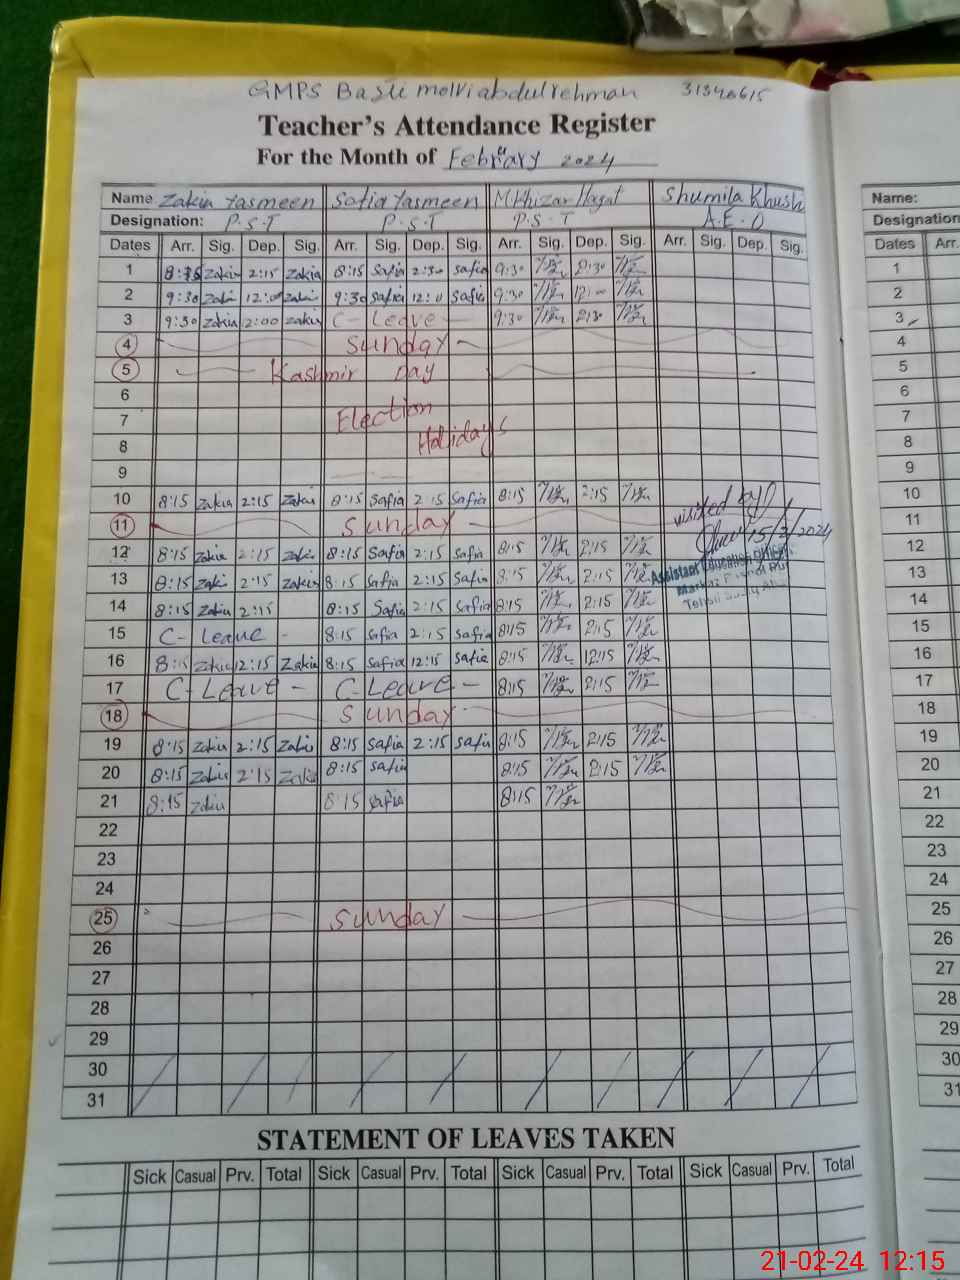 GMPS Basti molvi abdul rehman 31340615
Teacher's Attendance Register
For the Month of February 2024
Name Zakia Yasmeen Safia Yasmeen M Khizar Hayat Shumila Khush Name:
Designation: P.S.T P.S.T P.S.T A.E.O Designation
Dates Arr. Sig. Dep. Sig. Arr. Sig. Dep. Sig. Arr. Sig. Dep. Sig. Arr. Sig. Dep. Sig. Dates Arr.
1 8:15 Zakia 2:15 Zakia 8:15 Safia 2:30 Safia 9:30 2:30 1
2 9:30 Zakia 12:00 Zakia 9:30 Safia 12:0 Safia 9:30 12:00 2
3 9:30 Zakia 2:00 Zakia C- Leave 9:30 2:30 3
4 Sunday 4
5 Kashmir Day 5
6 6
7 Election 7
8 Holidays 8
9 9
10 8:15 Zakia 2:15 Zakia 8:15 Safia 2:15 Safia 8:15 2:15 visited by 10
11 Sunday 15/2/2024 11
12 8:15 Zakia 2:15 Zakia 8:15 Safia 2:15 Safia 8:15 2:15 Assistant Education Officer 12
13 8:15 Zakia 2:15 Zakia 8:15 Safia 2:15 Safia 8:15 2:15 Markaz 13
14 8:15 Zakia 2:15 8:15 Safia 2:15 Safia 8:15 2:15 Tehsil 14
15 C- Leave - 8:15 Safia 2:15 Safia 8:15 2:15 15
16 8:15 Zakia 12:15 Zakia 8:15 Safia 12:15 Safia 8:15 12:15 16
17 C- Leave - C- Leave - 8:15 2:15 17
18 Sunday 18
19 8:15 Zakia 2:15 Zakia 8:15 Safia 2:15 Safia 8:15 2:15 19
20 8:15 Zakia 2:15 Zakia 8:15 Safia 8:15 2:15 20
21 8:15 Zakia 8:15 Safia 8:15 21
22 22
23 23
24 24
25 Sunday 25
26 26
27 27
28 28
29 29
30 30
31 31
STATEMENT OF LEAVES TAKEN
Sick Casual Prv. Total Sick Casual Prv. Total Sick Casual Prv. Total Sick Casual Prv. Total
21-02-24 12:15